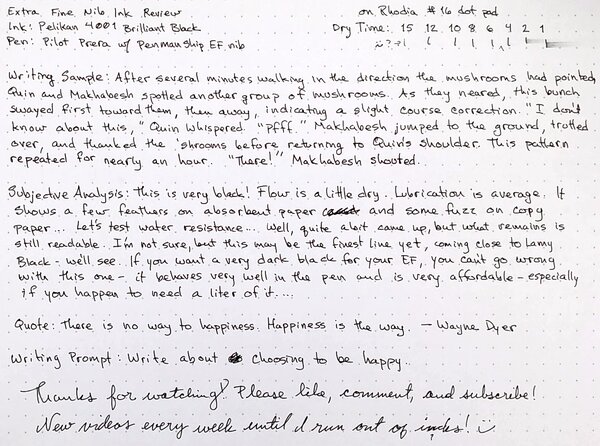 Extra Fine Nib Ink Review on Rhodia #16 dot pad
Ink: Pelikan 4001 Brilliant Black Dry Time: 15 12 10 8 6 4 2 1
Pen: Pilot Prera w/ Penmanship EF nib
Writing Sample: After several minutes walking in the direction the mushrooms had pointed,
Quin and Makhabesh spotted another group of mushrooms. As they neared, this bunch
swayed first toward them, then away, indicating a slight course correction. "I don't
know about this," Quin whispered. "Pfff." Makhabesh jumped to the ground, trotted
over, and thanked the 'shrooms before returning to Quin's shoulder. This pattern
repeated for nearly an hour. "There!" Makhabesh shouted.
Subjective Analysis: This is very black! Flow is a little dry. Lubrication is average. It
shows a few feathers on absorbent paper and some fuzz on copy
paper... Let's test water resistance... Well, quite a bit came up, but what remains is
still readable. I'm not sure, but this may be the finest line yet, coming close to Lamy
Black - we'll see. If you want a very dark black for your EF, you can't go wrong
with this one - it behaves very well in the pen and is very affordable - especially
if you happen to need a liter of it....
Quote: There is no way to happiness. Happiness is the way. - Wayne Dyer
Writing Prompt: Write about choosing to be happy.
Thanks for watching! Please like, comment, and subscribe!
New videos every week until I run out of inks! :)